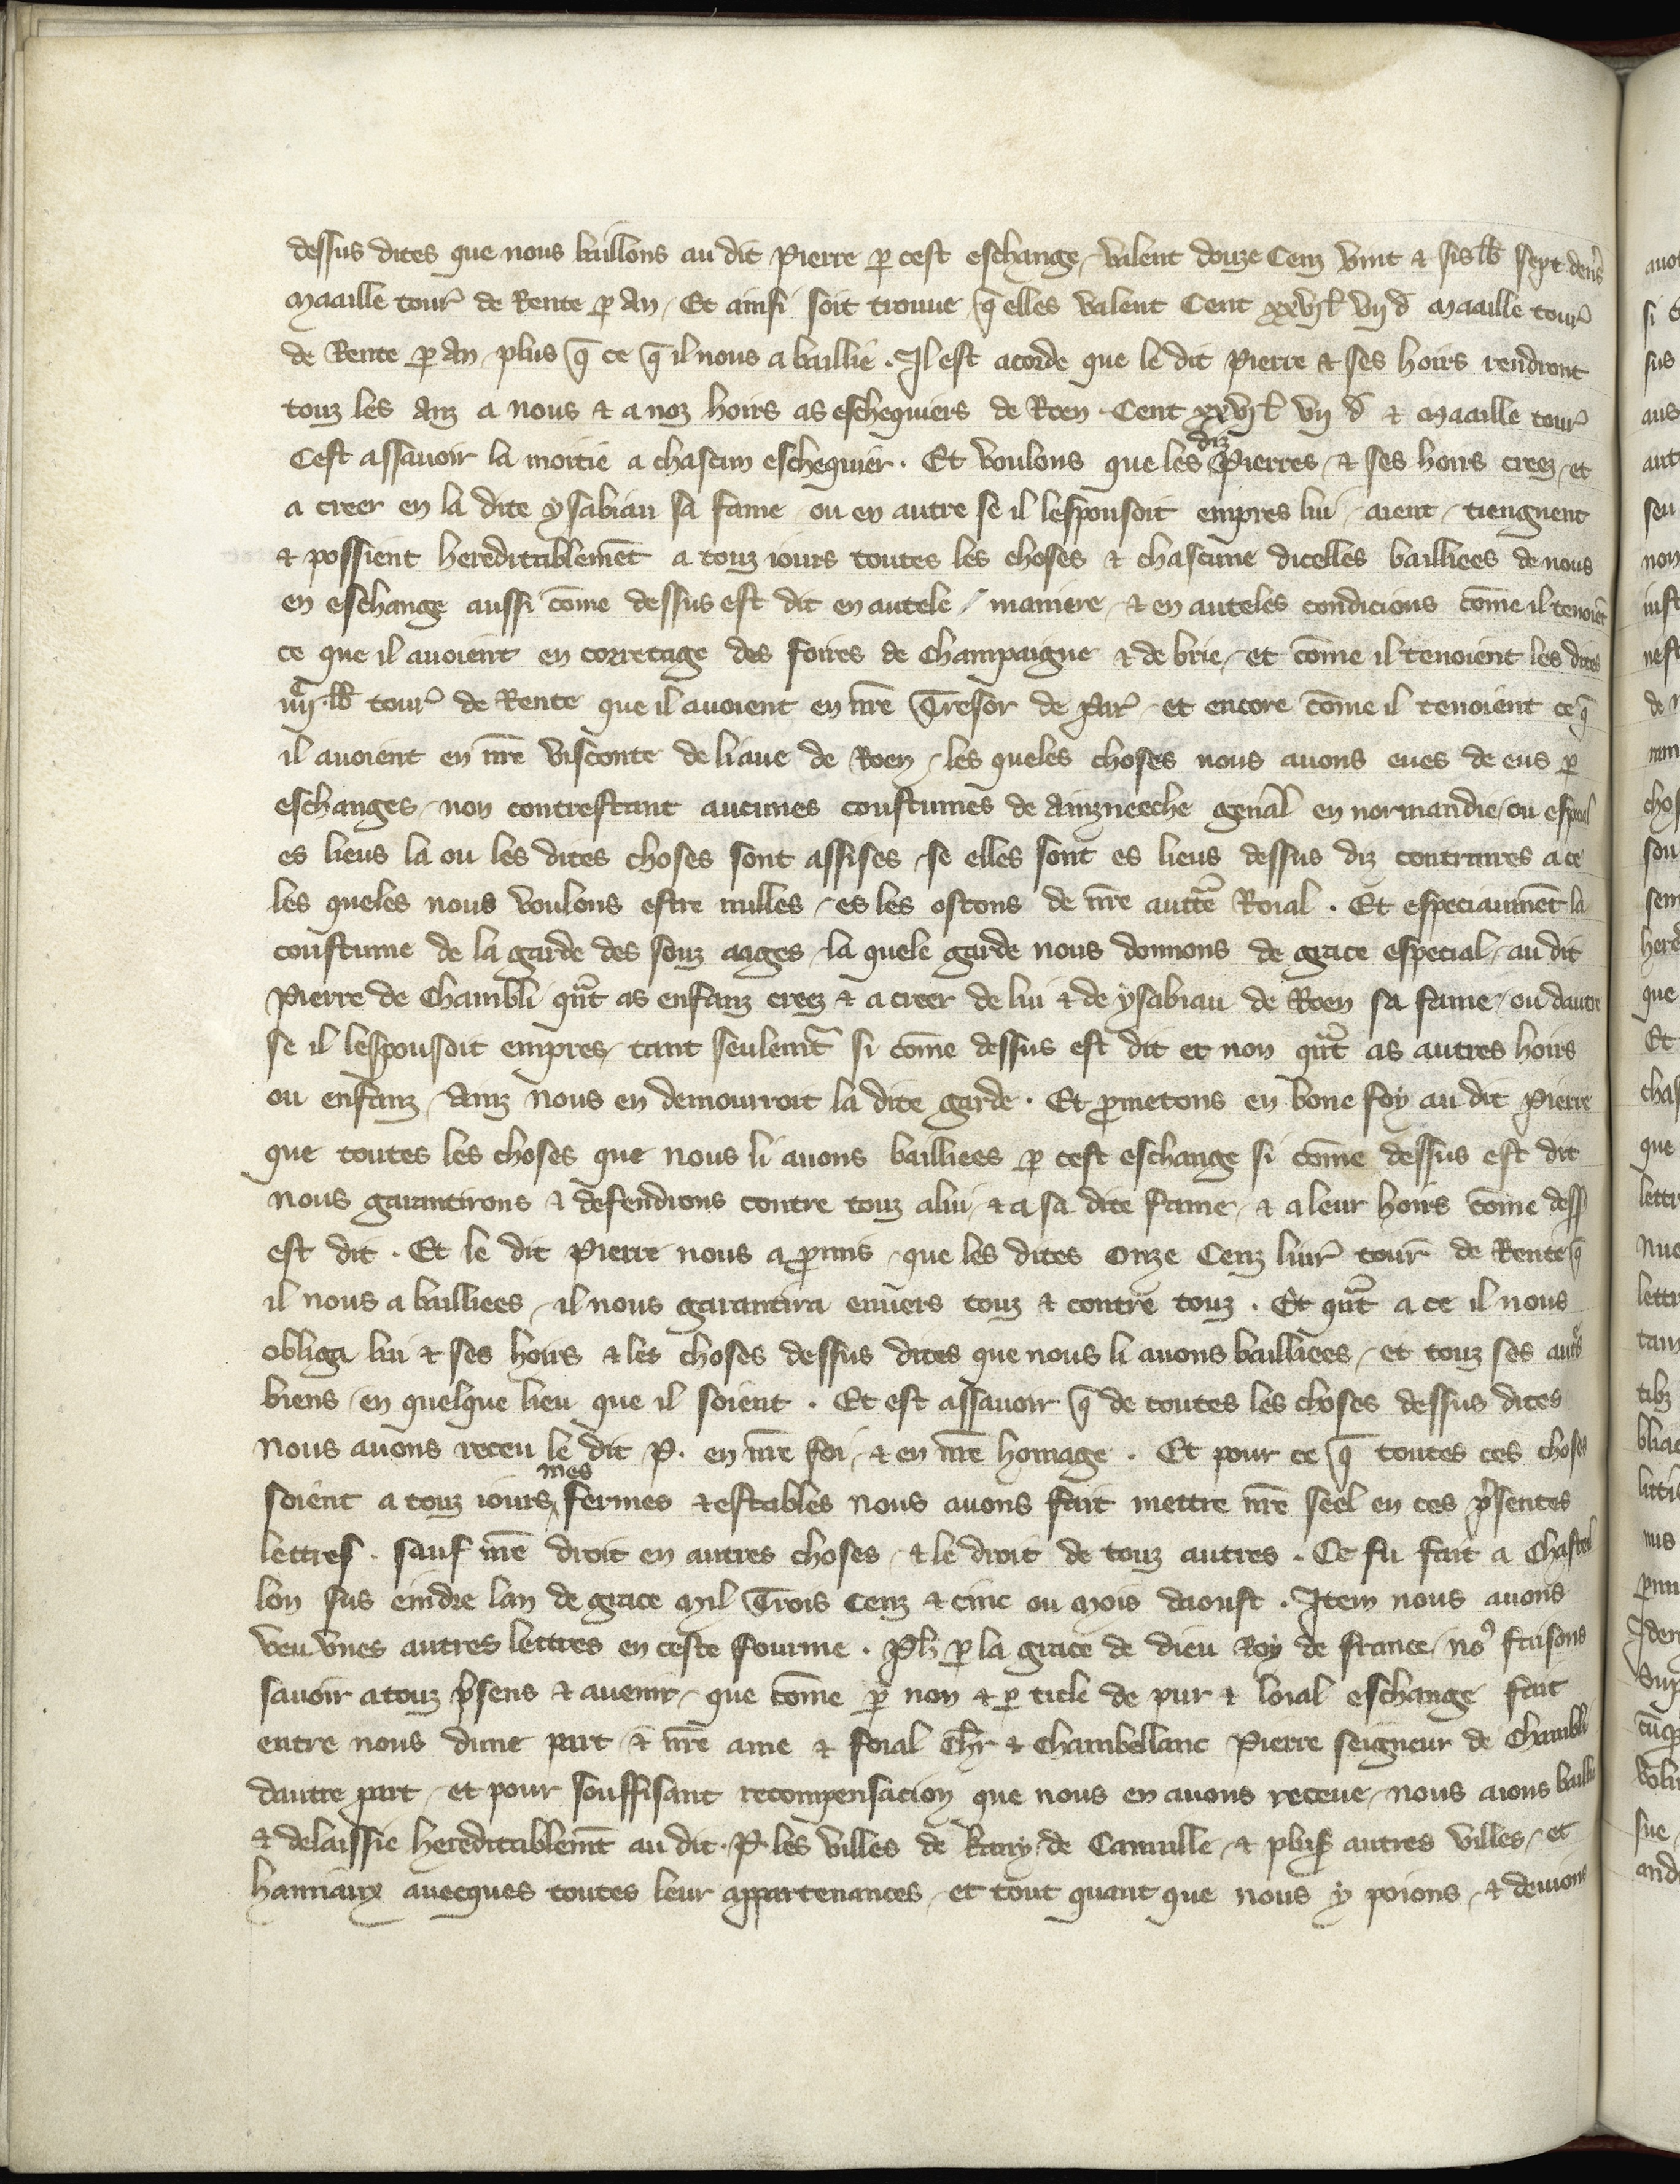 dessus dites que nous baillons au dit Pierre ꝑ cest eschange / valent douze Cenz vint ⁊ sis lb̃ sept den̾s
Maaille tour̾ de Rente ꝑ An / Et ainsi soit trouue / q̄ elles valent Cent xxvj l̃ vij d̃ maaille tour̾
de Rente ꝑ An / plus q̄ ce q̄ il nous a baillie . Il est acorde que le dit Pierre ⁊ ses hoirs rendront
touz les anz a nous ⁊ a noz hoirs as eschequiers de Roen . Cent xxvj l̃ vij d̃ ⁊ Maaille tour̾
Cest assauoir la moitie a chascun eschequier . Et voulons que les diz Pierres / ⁊ ses hoirs creez / et
a creer en la dite ysabiau sa fame / ou en autre se il lespousoit empres lui / aient / tiengnent
⁊ possient hereditablemēt a touz iours toutes les choses ⁊ chascune dicelles bailliees de nous
en eschange aussi cōme dessus est dit en autele / maniere / ⁊ en auteles condicions cōme il tenoiēt
ce que il auoient en corretage des foires de Champaigne ⁊ de brie / et cōme il tenoient les dites
iiijͨ . lb̃ tour̾ de Rente que il auoient en nr̄e Tresor de Par̾ / et encore cōme il tenoient ce q̄
il auoient en nr̄e visconte de liaue de Roen / les queles choses nous auons eues de eus ꝑ
eschanges / non contrestant aucunes coustumes de Ainzneeche gen̄al en normandie / ou esp̄al
es lieus la ou les dites choses sont assises / se elles sont es lieus dessus diz contraires a ce
les queles nous voulons estre nulles / es les ostons de nr̄e aucttē Roial . Et especiaumēt la
coustume de la garde des souz aages / la quele garde nous donnons de grace especial / au dit
Pierre de Chambli qn̄t as enfanz creez ⁊ a creer de lui ⁊ de ysabiau de Roen sa fame / ou dautre
se il lespousoit empres / tant seulem̄t si cōme dessus est dit et non qn̄t as autres hoirs
ou enfanz / Ainz nous en demourroit la dite garde . Et ꝓmetons en bone foy au dit Pierre
que toutes les choses que nous li auons bailliees ꝑ cest eschange si cōme dessus est dit
nous garantirons ⁊ defendrons contre touz a lui / ⁊ a sa dite fame / ⁊ a leur hoirs cōme dess̾
est dit . Et le dit Pierre nous a ꝓmis / que les dites Onze Cenz liur̾ tour̄ de Rente q̄
il nous a bailliees / il nous garantira enuers touz ⁊ contre touz . Et qn̄t a ce il nous
obliga lui ⁊ ses hoirs ⁊ les choses dessus dites que nous li auons bailliees / et touz ses aut̾s
biens / en quelque lieu que il soient . Et est assauoir q̄ de toutes les choses dessus dites
Nous auons receu le dit P . en nr̄e foi / ⁊ en nr̄e homage . Et pour ce q̄ toutes ces choses
soient a touz iours mes fermes ⁊ estables nous auons fait mettre nr̄e seel en ces p̾sentes
lettres . sauf nr̄e droit en autres choses / ⁊ le droit de touz autres . Ce fu fait a Chastel
lon sus eindre lan de grace Mil Trois Cenz ⁊ cinc ou Mois daoust . Item nous auons
veu vnes autres lettres en ceste fourme . Ph̄ ꝑ la grace de dieu Roy de france / no᷒ faisons
sauoir a touz p̾sens ⁊ auenir / que cōme ꝑ non ⁊ ꝑ title de pur ⁊ loial eschange fait
entre nous dune part ⁊ nr̄e ame ⁊ foial Ch̾r ⁊ Chambellanc Pierre seigneur de Chambli
dautre part / et pour souffisant recompensacion que nous en auons receue / nous aions baillie
⁊ delaissie hereditablem̄t au dit . P . les villes de Kany de Canuille / ⁊ plus̾ autres villes / et
hamiaux auecques toutes leur appartenances / et tout quant que nous y poions / ⁊ deuions